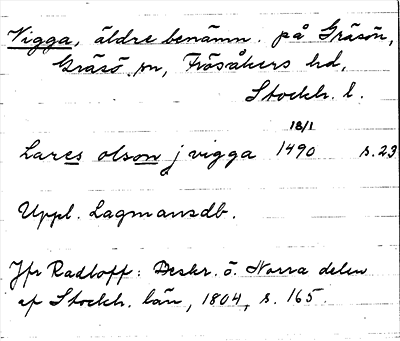 Vigga, äldre benämn. på Gräsön,
Gräsö sn, Frösåkers hd,
Stockh. l.
18/1
Lares olson j vigga 1490 s. 23
Uppl. Lagmansdb.
Jfr Radloff: Beskr. ö. Norra delen
af Stockh. län, 1804, s. 165.